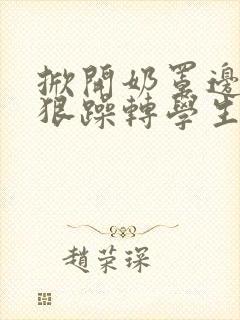 掀開奶罩邊
狠躁轉學生
趙荣琛